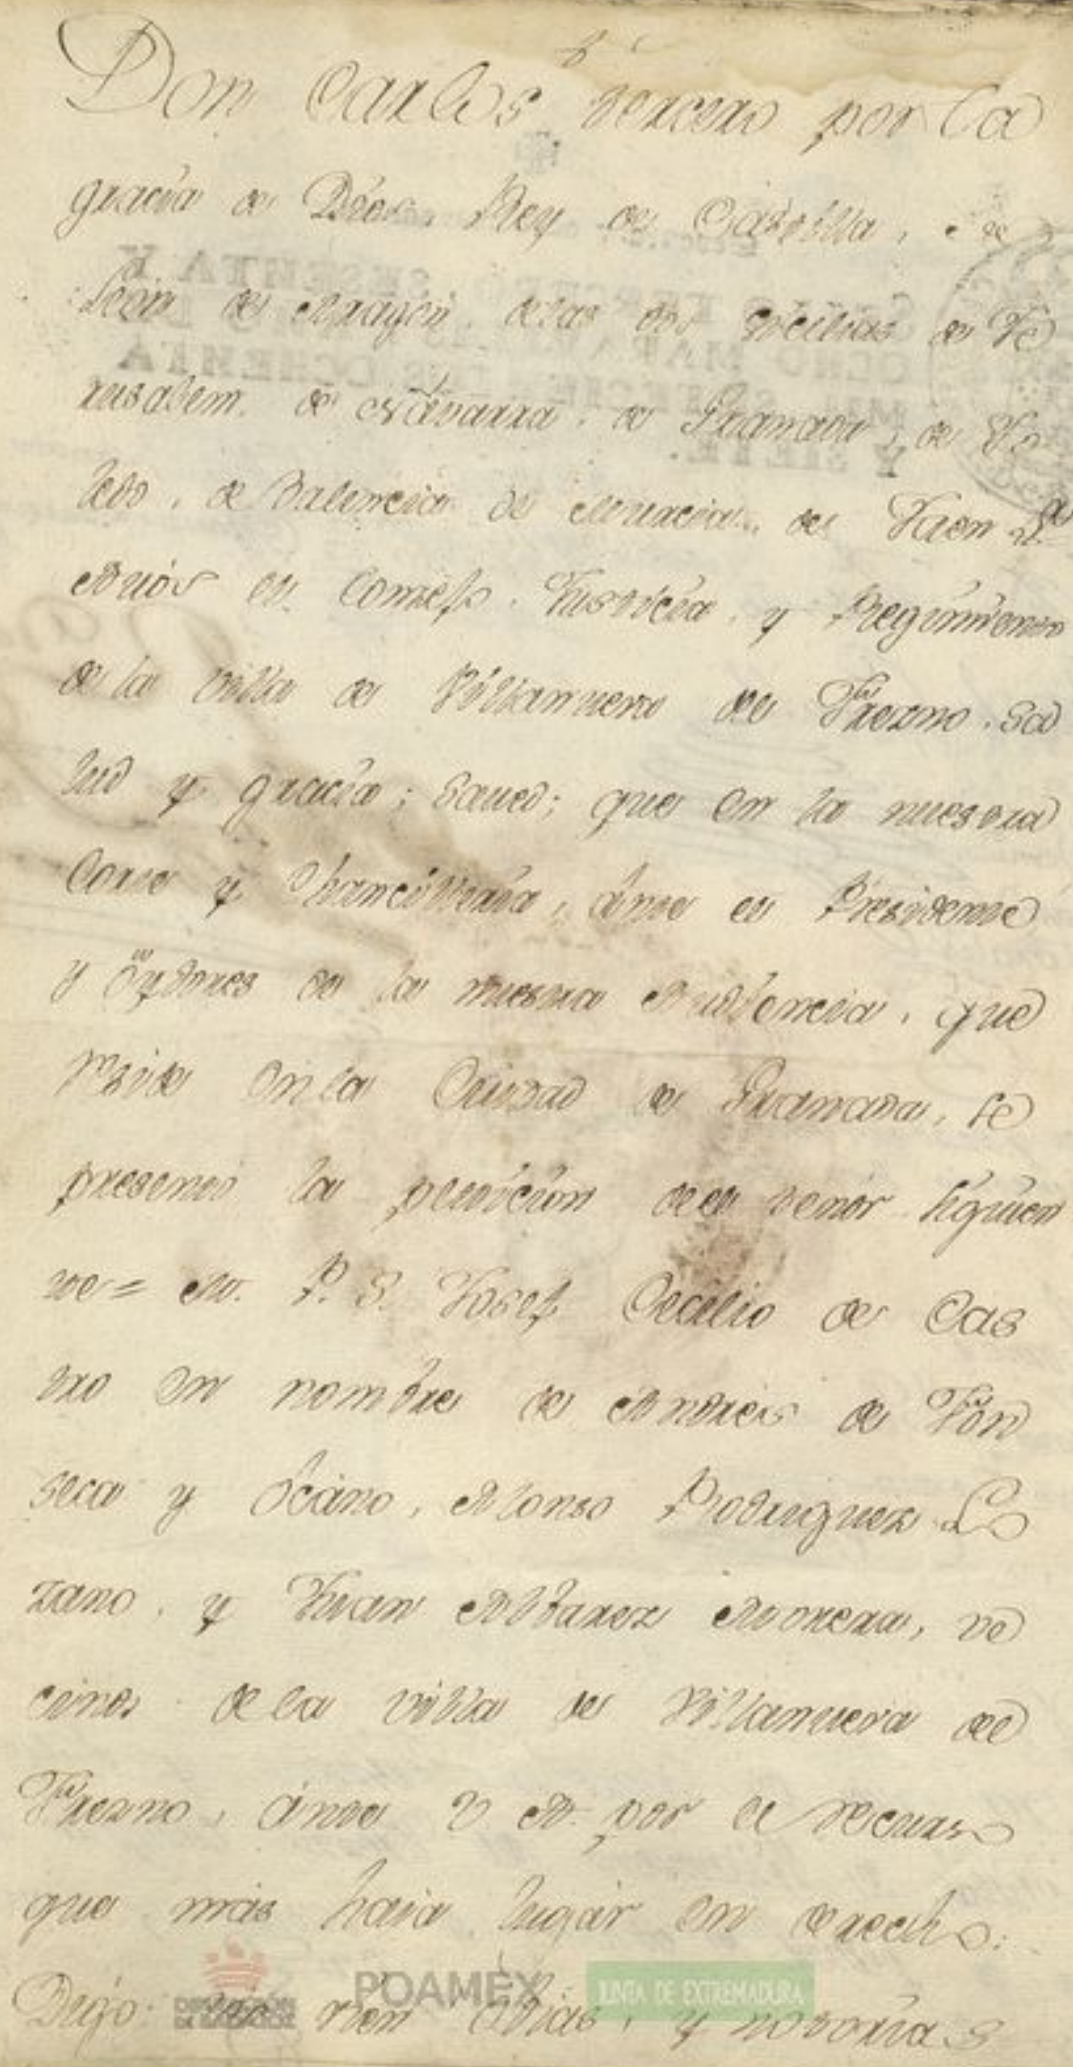 Don Carlos tercero por la
gracia de Dios, Rey de Castilla, de
Leon de Aragon, delas dos Sicilias de Je
rusalem. de Navarra. de Granada, de To
ledo, de Valencia de Murcia, de Jaen
A vos el Consejo. Justicia, y Regimiento
de la villa de Villanueva del Fresno. Sa
lud y gracia; saved; que en la nuestra
Corte y Chancilleria, ante el Presidente
y Oydores de la nuestra Audiencia, que
reside en la Ciudad de Granada, se
presentó la peticion del tenor siguien
te = M. P. S. Josef Cecilio de Cas
tro en nombre de Andres de Fon
seca y Ocano, Alonso Rodriguez Lo
zano, y Juan Albarez Morera, ve
cinos dela villa de Villanueva del
Fresno, ante V A. por el recurso
que más haia lugár en derecho:
Digo: y notorias
DIPUTACIÓN
DE BADAJOZ
PDAMEX
JUNTA DE EXTREMADURA